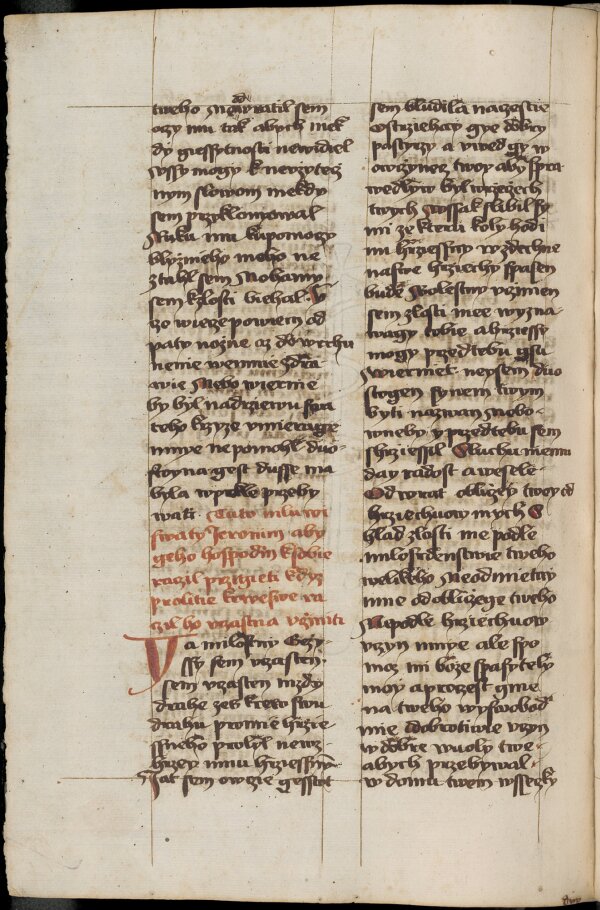 tweho Nyni wratil sem
oczy mu tak abych niek
dy giessytnosti newidiel
vssy mogy k nevzytecz
nym slowom niekdy
sem przyklonowal
Ruku mu kupomoczy
blyznieho meho ne
ztahl sem Nohamy
sem kzlosti biehal Y
czo wiecze powiem od
paty nozne az do wrchu
nenie wemnie zdra
wie Nebo wiernie
by byl nadrziewu swa
teho krzyze vmieragie
mnye nepomohl duo
stoyna gest dusse ma
byla wpekle przeby
wati Tuto mluwi
swaty Jeronim aby
geho hospodin ksobie
raczil przigieti kdyz
prolitie krwe swe ra
czil ho vczastna vcziniti
Ya milostny Gezy
ssy sem vczasten
sem vczasten mzdy
drahe zes krew swu
drahu promie hrzie
ssneho prolyl newz
hrzey mnu hrziessnym
Jat sem owcze gessto
sem bludila naczestie
ostrziehay gye dobry
pastyrzy a vwed gy w
owczynecz twoy aby spra
wedlyw byl wrzeczech
twych wssak slibil sy
mi ze kteru koly hodi
nu hrziessny wzdechne
naswe hrziechy spasen
bude Bolestny vczinien
sem zlosti mee wyzna
wagy tobie a hrziessy
mogy przed tebu gsu
zwiernie neysem duo
stogen synem twym
byti nazwan Nebo
wnebe y przed tebu sem
shrziessil Sluchu memu
day radost a wesele
Odwrat obliczey twoy od
hrziechuow mych S
hlad zlosti me podle
milosrdenstwie tweho
welikeho Neodmietay
mne od obliczege tweho
Nepodle hrziechuow
vczyn mnye ale spo
moz mi boze spasytely
moy a pro czest gmene
na tweho wyswobod
mie dobrotiwie vczyn
wdobre wuoly twe
abych przebywal
w domu twem wsseczky